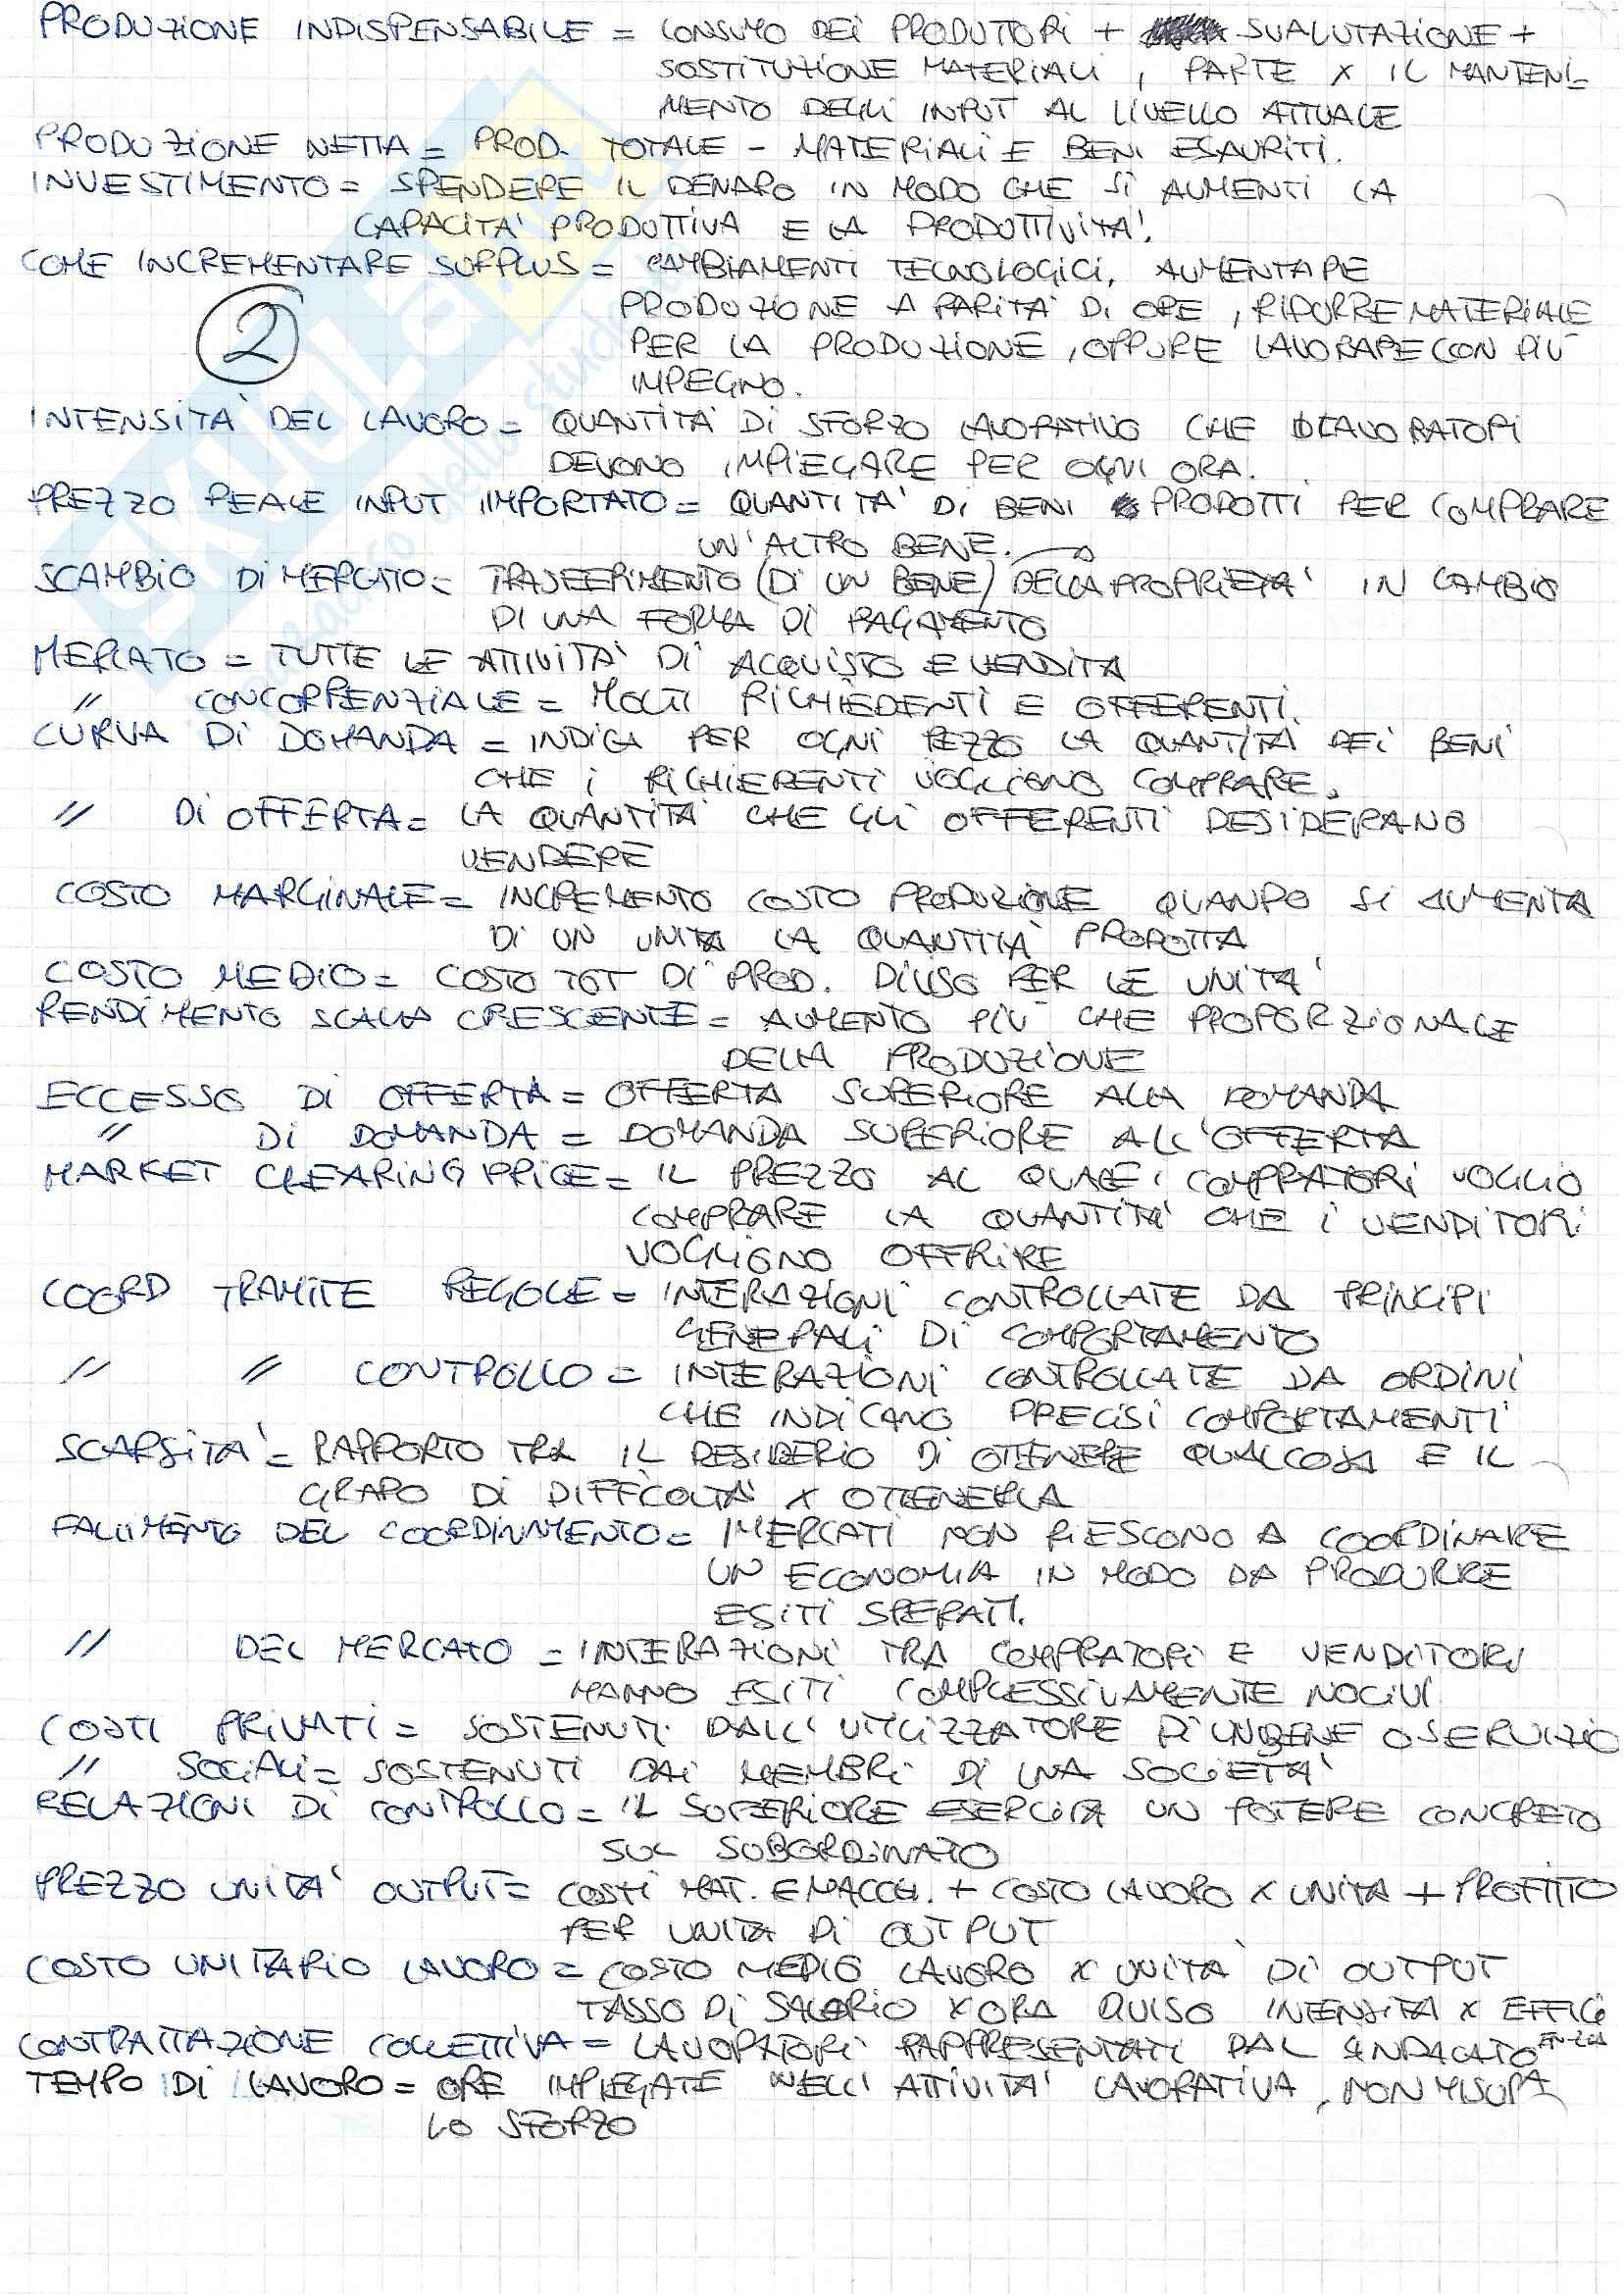 PRODUZIONE INDISPENSABILE = CONSUMO DEI PRODUTTORI + SVALUTAZIONE +
SOSTITUZIONE MATERIALI, PARTE X IL MANTENI-
MENTO DEGLI INPUT AL LIVELLO ATTUALE
PRODUZIONE NETTA = PROD. TOTALE - MATERIALI E BENI ESAURITI.
INVESTIMENTO = SPENDERE IL DENARO IN MODO CHE SI AUMENTI LA
CAPACITA' PRODUTTIVA E LA PRODUTTIVITA'.
COME INCREMENTARE SURPLUS = CAMBIAMENTI TECNOLOGICI, AUMENTARE
PRODUZIONE A PARITA' DI ORE, RIDURRE MATERIALE
2
PER LA PRODUZIONE, OPPURE LAVORARE CON PIU'
IMPEGNO.
INTENSITA' DEL LAVORO = QUANTITA' DI SFORZO LAVORATIVO CHE I LAVORATORI
DEVONO IMPIEGARE PER OGNI ORA.
PREZZO REALE INPUT IMPORTATO = QUANTITA' DI BENI PRODOTTI PER COMPRARE
UN'ALTRO BENE.
SCAMBIO DI MERCATO = TRASFERIMENTO (DI UN BENE) DELLA PROPRIETA' IN CAMBIO
DI UNA FORMA DI PAGAMENTO
MERCATO = TUTTE LE ATTIVITA' DI ACQUISTO E VENDITA
" CONCORRENZIALE = MOLTI RICHIEDENTI E OFFERENTI.
CURVA DI DOMANDA = INDICA PER OGNI PEZZO LA QUANTITA DEI BENI
CHE I RICHIEDENTI VOGLIONO COMPRARE.
" DI OFFERTA = LA QUANTITA' CHE GLI OFFERENTI DESIDERANO
VENDERE
COSTO MARGINALE = INCREMENTO COSTO PRODUZIONE QUANDO SI AUMENTA
DI UN UNITA LA QUANTITA' PRODOTTA
COSTO MEDIO = COSTO TOT DI PROD. DIVISO PER LE UNITA'
RENDIMENTO SCALA CRESCENTE = AUMENTO PIU' CHE PROPORZIONALE
DELLA PRODUZIONE
ECCESSO DI OFFERTA = OFFERTA SUPERIORE ALLA DOMANDA
" DI DOMANDA = DOMANDA SUPERIORE ALL'OFFERTA
MARKET CLEARING PRICE = IL PREZZO AL QUALE I COMPRATORI VOGLIO
COMPRARE LA QUANTITA' CHE I VENDITORI
VOGLIONO OFFRIRE
COORD TRAMITE REGOLE = INTERAZIONI CONTROLLATE DA PRINCIPI
GENERALI DI COMPORTAMENTO
" " CONTROLLO = INTERAZIONI CONTROLLATE DA ORDINI
CHE INDICANO PRECISI COMPORTAMENTI
SCARSITA' = RAPPORTO TRA IL DESIDERIO DI OTTENERE QUALCOSA E IL
GRADO DI DIFFICOLTA' X OTTENERLA
FALLIMENTO DEL COORDINAMENTO = I MERCATI NON RIESCONO A COORDINARE
UN ECONOMIA IN MODO DA PRODURRE
ESITI SPERATI.
" DEL MERCATO = INTERAZIONI TRA COMPRATORI E VENDITORI
HANNO ESITI COMPLESSIVAMENTE NOCIVI
COSTI PRIVATI = SOSTENUTI DALL'UTILIZZATORE DI UN BENE O SERVIZIO
" SOCIALI = SOSTENUTI DAI MEMBRI DI UNA SOCIETA'
RELAZIONI DI CONTROLLO = IL SUPERIORE ESERCITA UN POTERE CONCRETO
SUL SUBORDINATO
PREZZO UNITA' OUTPUT = COSTI MAT. E MACCH. + COSTO LAVORO X UNITA + PROFITTO
PER UNITA DI OUTPUT
COSTO UNITARIO LAVORO = COSTO MEDIO LAVORO X UNITA' DI OUTPUT
TASSO DI SALARIO X ORA DIVISO INTENSITA X EFFICI
EN-ZIA
CONTRATTAZIONE COLLETTIVA = LAVORATORI RAPPRESENTATI DAL SINDACATO
TEMPO DI LAVORO = ORE IMPIEGATE NELL'ATTIVITA' LAVORATIVA, NON MISURA
LO SFORZO